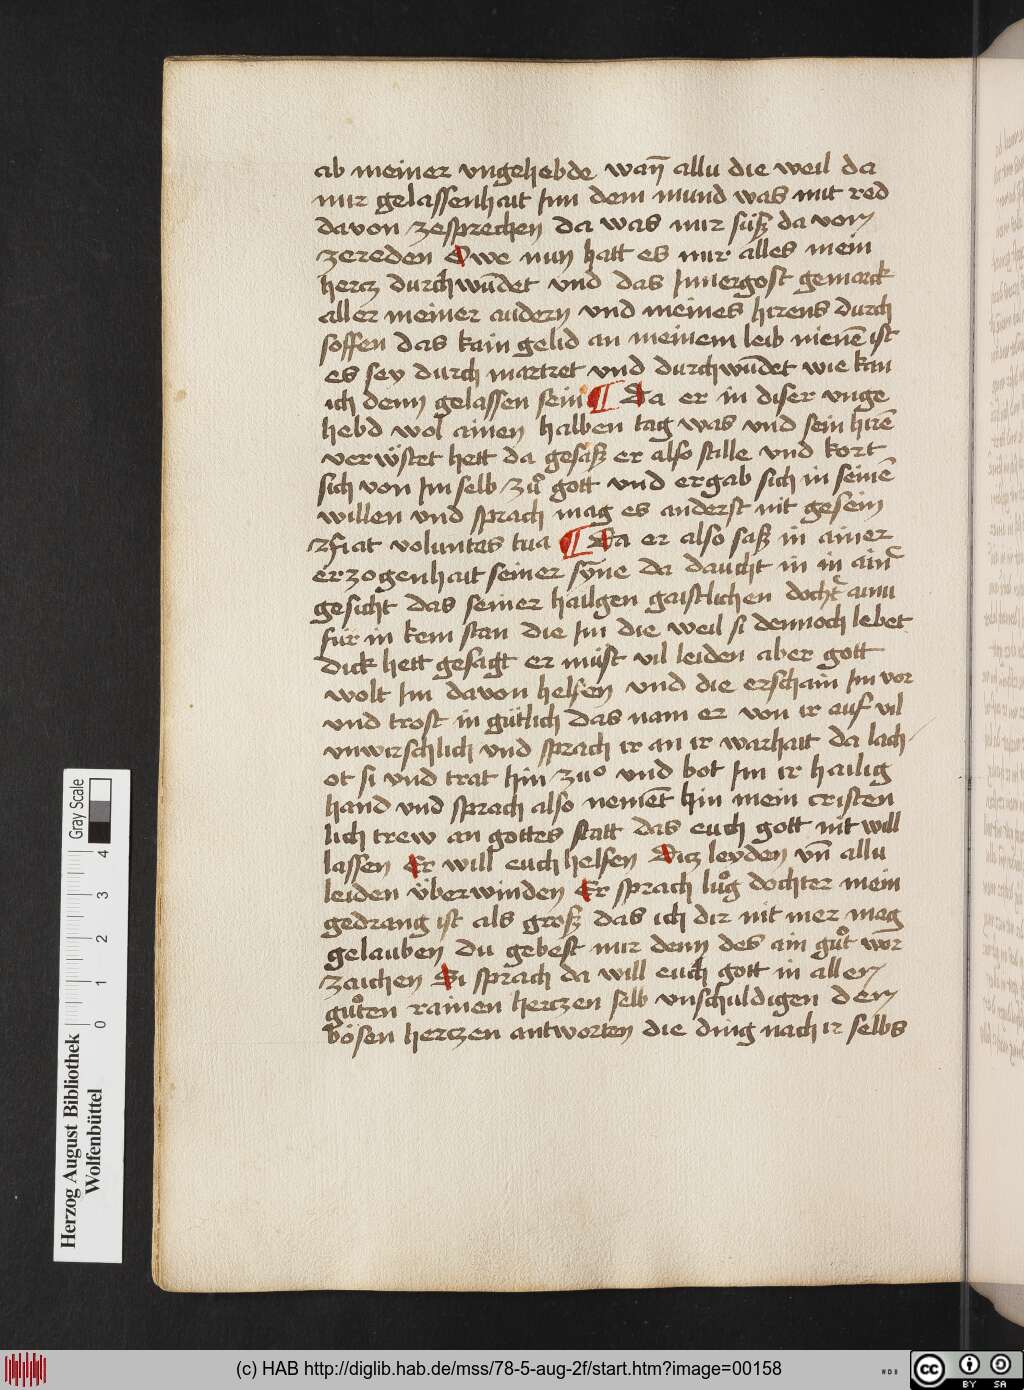 ab meiner vngehebde wañ allu die weil da
mir gelassenhait Jnn dem mund was mit red
davon zesprechen da was mir süsz da von
zereden Owe nun hatt es mir alles mein
hercz durchwūdet vnd das Jnnergost gemarck
aller meiner audern vnd meines hirens durch
soffen das kain gelid an meinem leib nienē ist
es sey durch martret vnd durchwūdet wie kan
ich denn gelassen sein ¶ Da er in diser vnge
hebd wol ainen halben tag was vnd sein hirē
verwöstet hett da gesasz er also stille vnd kort
sich von Jm selb zuͦ gott vnd ergab sich in seinē
willen vnd sprach mag es anderst nit gesein
fiat voluntes tua ¶ Da er also sasz in ainer
erzogenhait seiner syñe da daucht in in ainr̄
gesicht das seiner hailgen gaistlichen docht̄ ainu
für in kem stan die Jm die weil si dennoch lebet
dick hett gesagt er müst vil leiden aber gott
wolt Jm davon helfen vnd die erschain Jm vor
vnd trost in gütlich das nam er von ir auf vil
vnwirschlich vnd sprach ir an ir warhait da lach
ot si vnd trat hin zuͦ vnd bot Jm ir hailig
hand vnd sprach also nemēt hin mein cristen
lich trew an gottes statt das euch gott nit will
lassen Er will euch helfen Disz leyden vñ allu
leiden überwinden Er sprach luͦg dochter mein
gedrang ist als grosz das ich dir nit mer mag
gelauben du gebest mir denn des ain guͦt wor
zaichen Si sprach da will euch gott in allen
guͦten rainen herczen selb vnschuldigen den
bösen herczen antworten die ding nach ir selbs
Gray Scale
0 1 2 3 4
Herzog August Bibliothek
Wolfenbüttel
(c) HAB http://diglib.hab.de/mss/78-5-aug-2f/start.htm?image=00158
WDB
cc BY SA